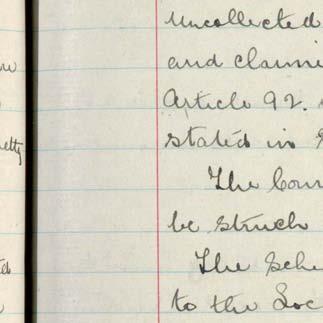 uncollected
and claimi
Article 92.
stated in
The Cour
be struck
The Sche
to the Soc